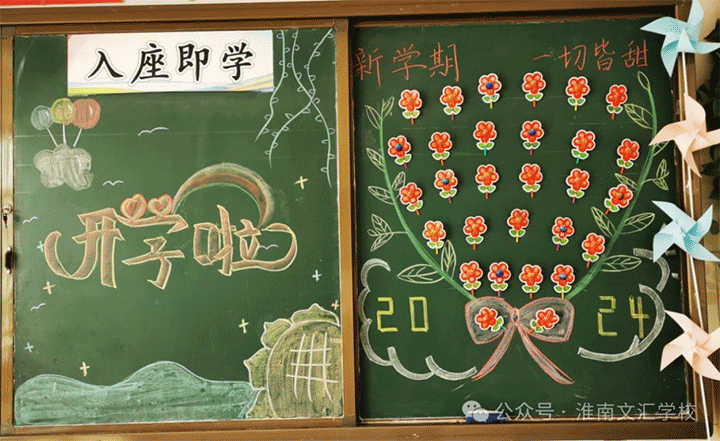 入座即学
开学啦
新学期 一切皆甜
20 24
公众号·淮南文汇学校